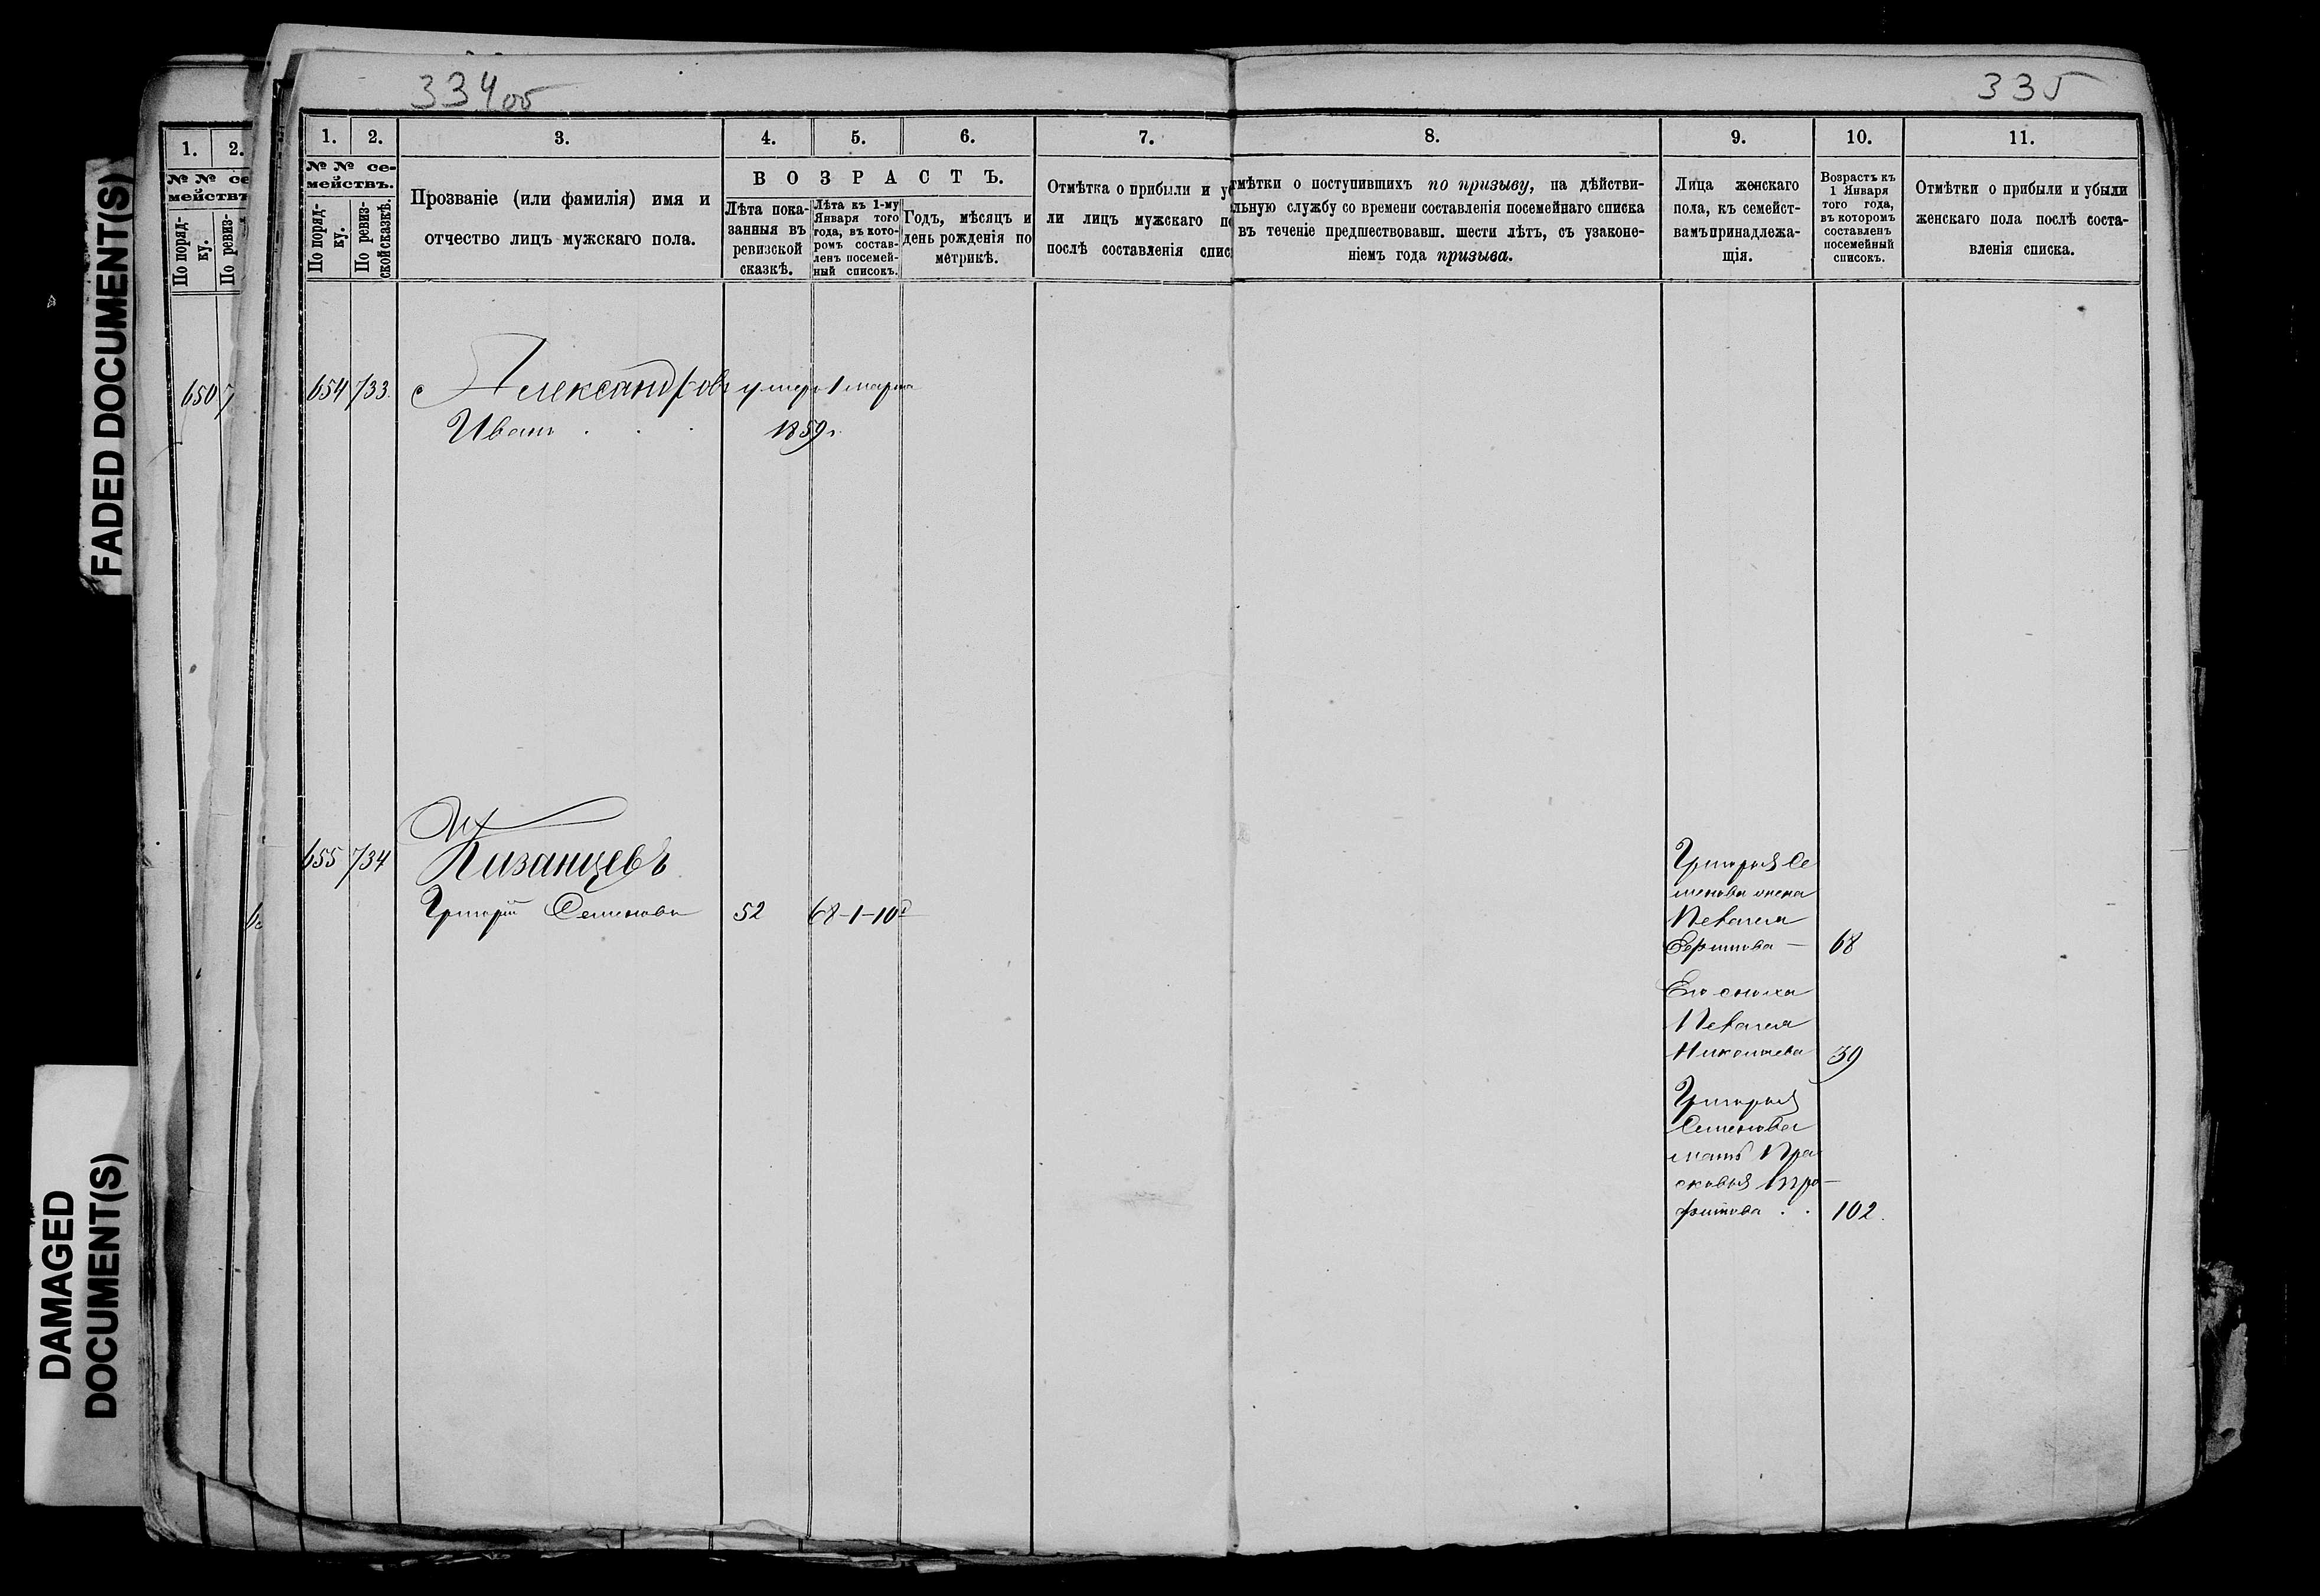 FADED DOCUMENT(S)
DAMAGED
DOCUMENT(S)
334 об
335
1.
2.
№ № се
мействъ
По поряд-
ку.
По ревиз-
650
1.
2.
3.
4.
5.
6.
7.
8.
9.
10.
11.
№ № се-
мействъ.
По поряд-
ку.
По ревиз-
ской сказкѣ.
Прозваніе (или фамилія) имя и
отчество лицъ мужскаго пола.
ВОЗРАСТЪ.
Лѣта пока-
занныя въ
ревизской
сказкѣ.
Лѣта къ 1-му
Января того
года, въ кото-
ромъ состав-
ленъ посемей-
ный списокъ.
Годъ, мѣсяцъ и
день рожденія по
метрикѣ.
Отмѣтка о прибыли и у
ли лицъ мужскаго п
послѣ составленія спис
тмѣтки о поступившихъ по призыву, на дѣйстви-
льную службу со времени составленія посемейнаго списка
въ теченіе предшествовавш. шести лѣтъ, съ узаконе-
ніемъ года призыва.
Лица женскаго
пола, къ семейст-
вамъ принадлежа-
щія.
Возрастъ къ
1 Января
того года,
въ которомъ
составленъ
посемейный
списокъ.
Отмѣтки о прибыли и убыли
женскаго пола послѣ соста-
вленія списка.
654 733. Александровъ умеръ 1 марта
Иванъ . . . 1859 г.
655 734
Казанцевъ
Григорій Семеновъ 52 68-1-10д
Григорья Се
менова жена
Пелагея
68
Его сноха
Пелагея
Николаева 39
Григорья
Семенова
мать Пра
сковья Тро
фимова . . 102.